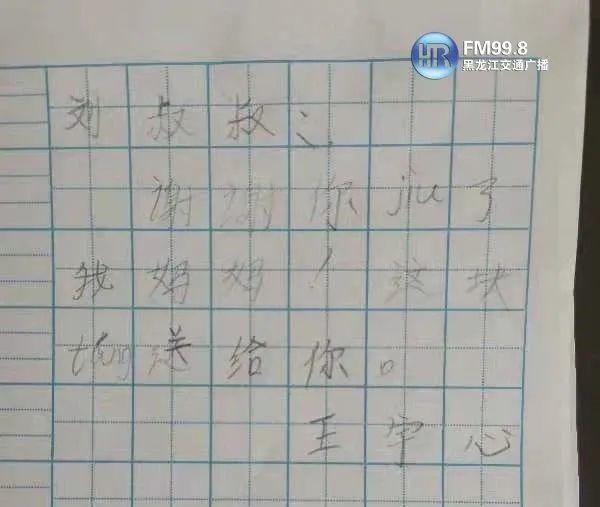 FM99.8
黑龙江交通广播
刘叔叔:
谢谢你jiu了
我妈妈!这块
tang送给你。
王宇心